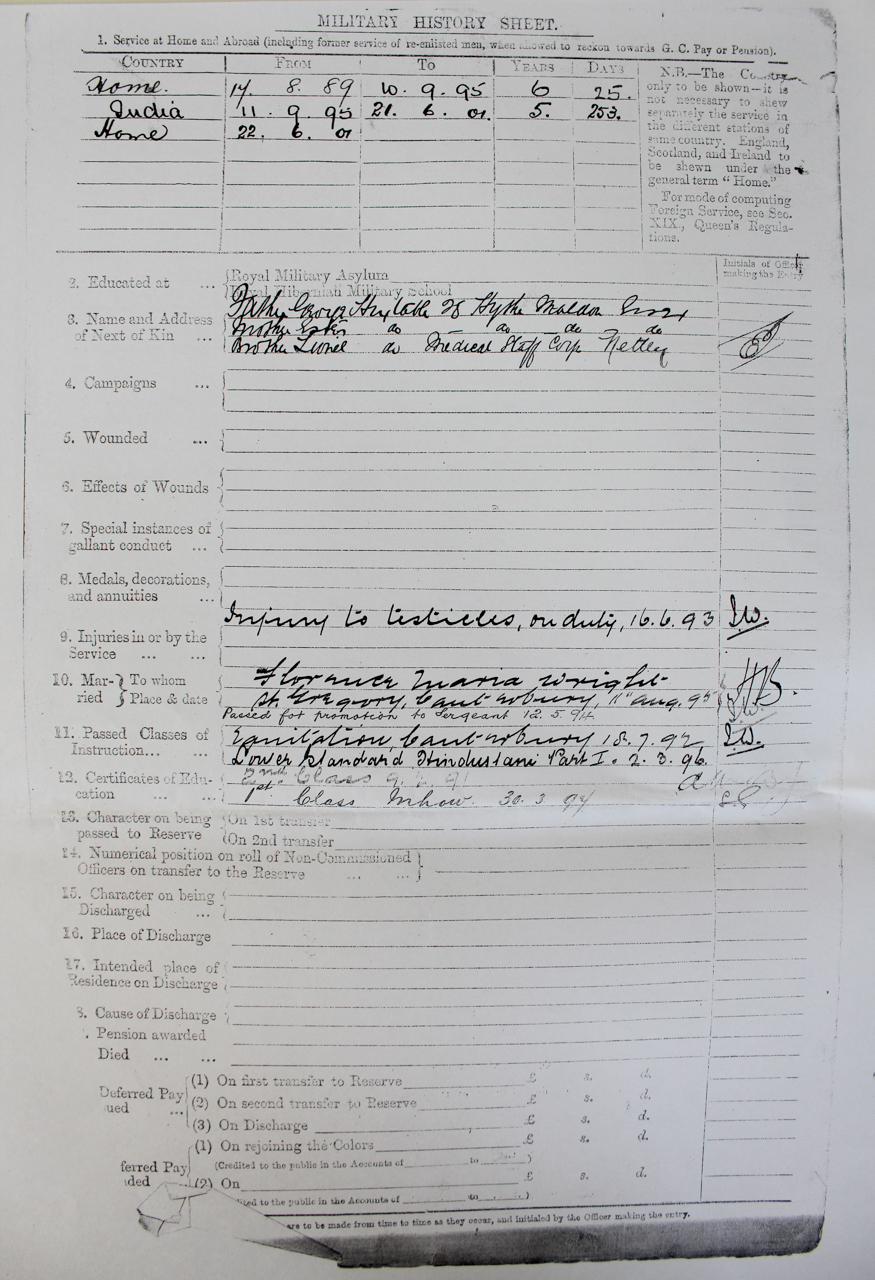 MILITARY HISTORY SHEET.
1. Service at Home and Abroad (including former service of re-enlisted men, when allowed to reckon towards G. C. Pay or Pension).
COUNTRY FROM TO YEARS DAYS
Home. 17. 8. 89 10. 9. 95 6 25.
India 11. 9. 95 21. 6. 01. 5. 253.
Home 22. 6. 01
N.B.—The
only to be shown—it is
not necessary to shew
separately the service in
the different stations of
same country. England,
Scotland, and Ireland to
be shewn under the
general term “Home.”
For mode of computing
Foreign Service, see Sec.
XIX., Queen's Regula-
tions.
Initials of Officer
making the Entry
2. Educated at ... Royal Military Asylum
Royal Hibernian Military School
3. Name and Address
of Next of Kin ...
Father George 28 Hythe Maldon Essex
Mother do do do do
Brother Lionel do Medical Staff Corp Netley
4. Campaigns ...
5. Wounded ...
6. Effects of Wounds
7. Special instances of
gallant conduct ...
8. Medals, decorations,
and annuities ...
9. Injuries in or by the
Service ... ...
Injury to testicles, on duty, 16.6.93 J.W.
10. Mar- To whom
ried Place & date
Florence Maria Wright
St. Gregory, Canterbury, 11" Aug. 95
Passed for promotion to Sergeant 12.5.94 J.W.
11. Passed Classes of
Instruction... ...
Equitation, Canterbury 18.7.92 J.W.
Lower Standard Hindustani Part I. 2.3.96.
12. Certificates of Edu-
cation ... ...
2nd Class
1st Class Mhow 30.3
13. Character on being
passed to Reserve
On 1st transfer
On 2nd transfer
14. Numerical position on roll of Non-Commissioned
Officers on transfer to the Reserve ... ...
15. Character on being
Discharged ...
16. Place of Discharge
17. Intended place of
Residence on Discharge
8. Cause of Discharge
. Pension awarded
Died ... ...
Deferred Pay
ued ...
(1) On first transfer to Reserve £ s. d.
(2) On second transfer to Reserve £ s. d.
(3) On Discharge £ s. d.
ferred Pay
ded
(1) On rejoining the Colors £ s. d.
(Credited to the public in the Accounts of to )
(2) On £ s. d.
dited to the public in the Accounts of to )
are to be made from time to time as they occur, and initialed by the Officer making the entry.